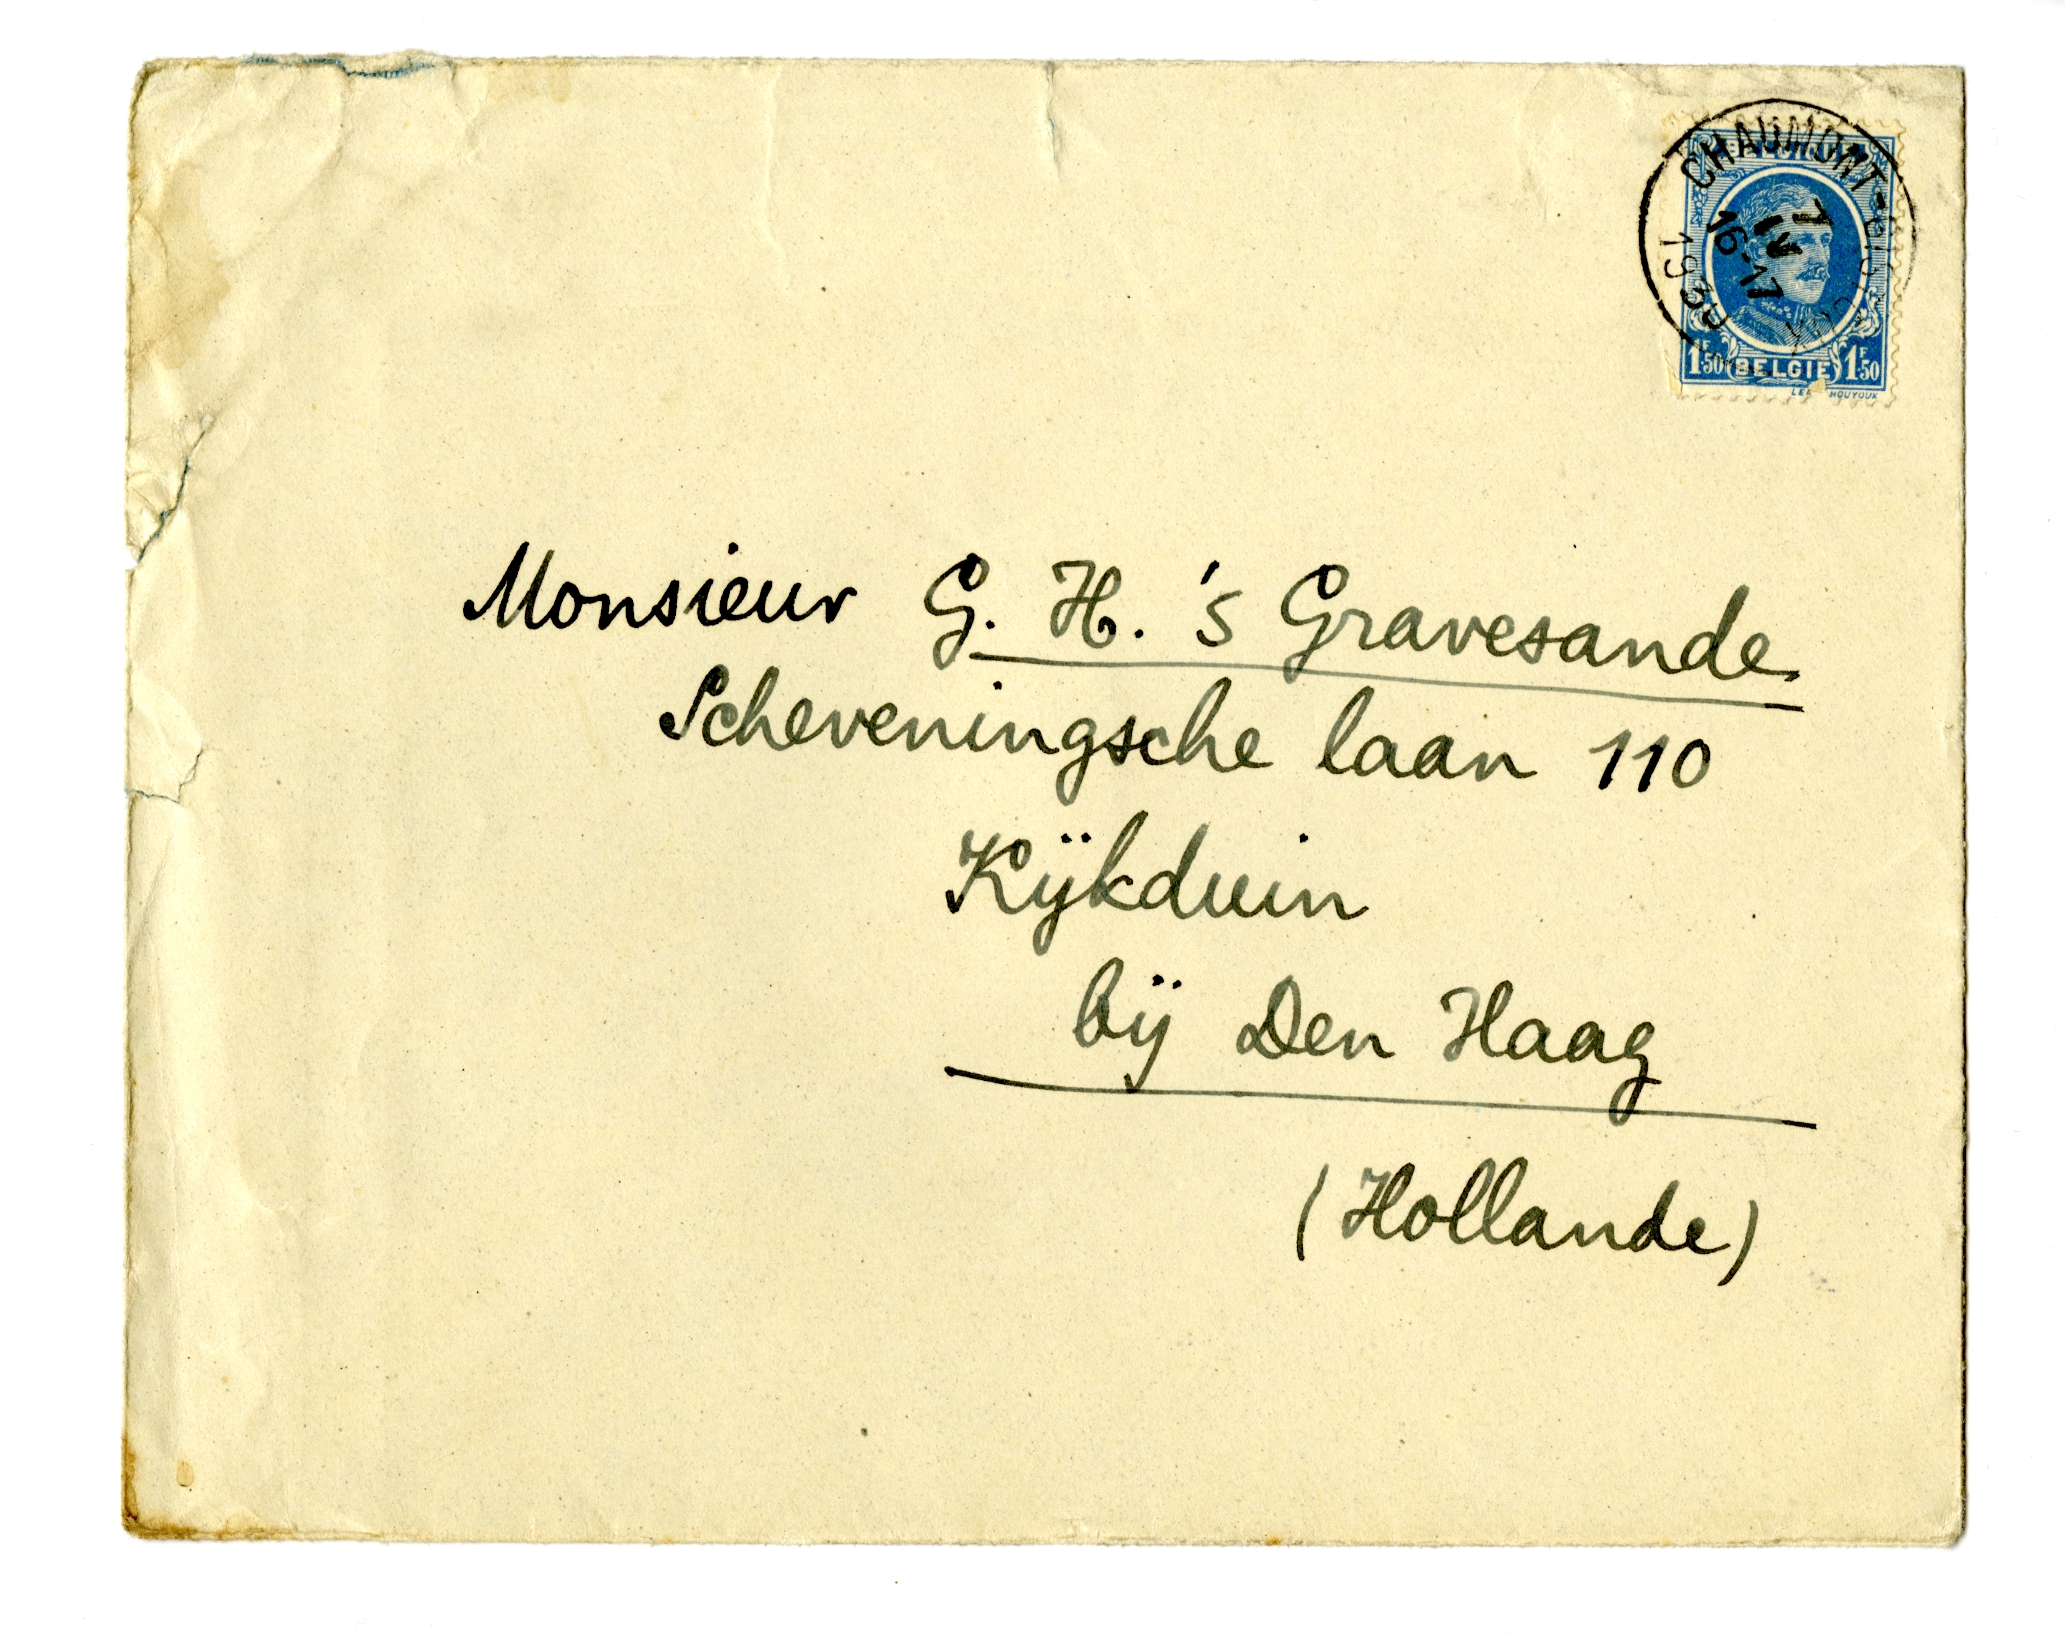 CHAUMONT-GISTOUX
7
IV
16-17
1933
1F50 BELGIE 1F50
HOUYOUX
Monsieur G. H. 's Gravesande
Scheveningsche laan 110
Kijkduin
bij Den Haag
(Hollande)